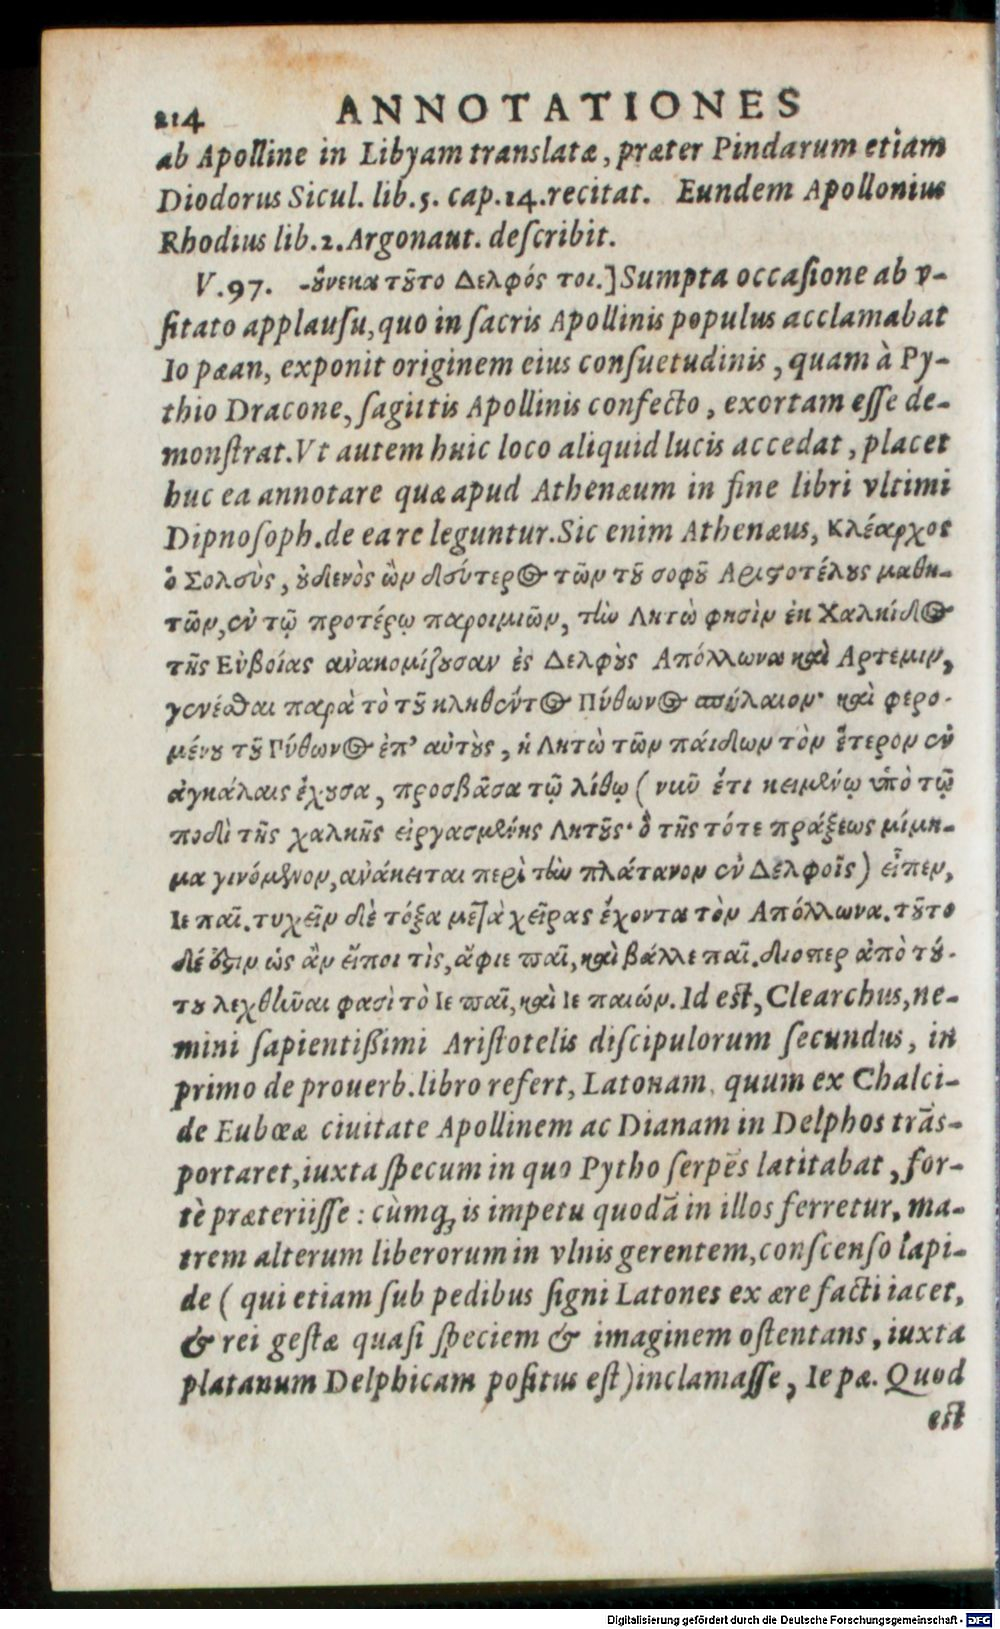 214 ANNOTATIONES
ab Apolline in Libyam translatæ, præter Pindarum etiam
Diodorus Sicul. lib.5. cap.14.recitat. Eundem Apollonius
Rhodius lib.2.Argonaut. deſcribit.
V.97. -ȣ̔́νεκα τȣ͂το Δελφός τοι.] Sumpta occaſione ab v-
ſitato applauſu, quo in ſacris Apollinis populus acclamabat
Io pæan, exponit originem eius conſuetudinis, quam à Py-
thio Dracone, ſagittis Apollinis confecto, exortam eſſe de-
monſtrat. Vt autem huic loco aliquid lucis accedat, placet
huc ea annotare quæ apud Athenæum in fine libri vltimi
Dipnoſoph.de ea re leguntur. Sic enim Athenæus, Κλέαρχος
ὁ Σολεὺς, ȣ̓δενὸς ὢν δεύτερος τῶν τȣ͂ σοφȣ͂ Αριστοτέλȣς μαθη-
τῶν, ἐν τῷ προτέρῳ παροιμιῶν, τὴν Λητὼ φησὶν ἐκ Χαλκίδος
τῆς Εὐβοίας ἀνακομίζȣσαν ἐς Δελφȣ̀ς Απόλλωνα καὶ Αρτεμιν,
γενέσθαι παρὰ τὸ τȣ͂ κληθέντος Πύθωνος σπήλαιον· καὶ φερο-
μένȣ τȣ͂ Πύθωνος ἐπ’ αὐτȣ̀ς, ἡ Λητὼ τῶν παίδων τὸν ἕτερον ἐν
ἀγκάλαις ἔχȣσα, προσβᾶσα τῷ λίθῳ ( νιῦ ἔτι κειμένῳ ὑπὸ τῷ
ποδὶ τῆς χαλκῆς εἰργασμένης Λητȣ͂ς· ὃ τῆς τότε πράξεως μίμη-
μα γινόμενον, ἀνάκειται περὶ τὴν πλάτανον ἐν Δελφοῖς) εἶπεν,
Ιε παῖ. τυχεῖν δὲ τόξα μετὰ χεῖρας ἔχοντα τὸν Απόλλωνα. τȣ͂το
δέ ὅστιν ὡς ἂν εἴποι τὶς, ἄφιε παῖ, καὶ βάλλε παῖ. διοπερ ἀπὸ τȣ́-
τȣ λεχθῆναι φασὶ τὸ Ιε παῖ, καὶ Ιε παιών. Id eſt, Clearchus, ne-
mini ſapientißimi Ariſtotelis diſcipulorum ſecundus, in
primo de prouerb. libro refert, Latonam, quum ex Chalci-
de Eubœæ ciuitate Apollinem ac Dianam in Delphos trãs-
portaret, iuxta ſpecum in quo Pytho ſerpẽs latitabat, for-
tè præteriiſſe : cùmq́; is impetu quodã in illos ferretur, ma-
trem alterum liberorum in vlnis gerentem, conſcenſo lapi-
de ( qui etiam ſub pedibus ſigni Latones ex ære facti iacet,
& rei geſtæ quaſi ſpeciem & imaginem oſtentans, iuxta
platanum Delphicam poſitus eſt) inclamaſſe, Ie pæ. Quod
eſt
Digitalisierung gefördert durch die Deutsche Forschungsgemeinschaft - DFG